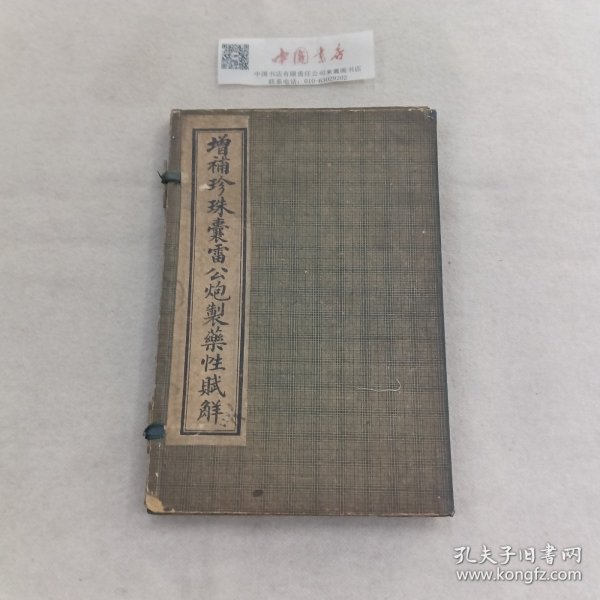 中国书店
中国书店有限责任公司来薰阁书店
联系电话：010-63029202
增補珍珠囊雷公炮製藥性賦解
孔夫子旧书网
www.kongfz.com